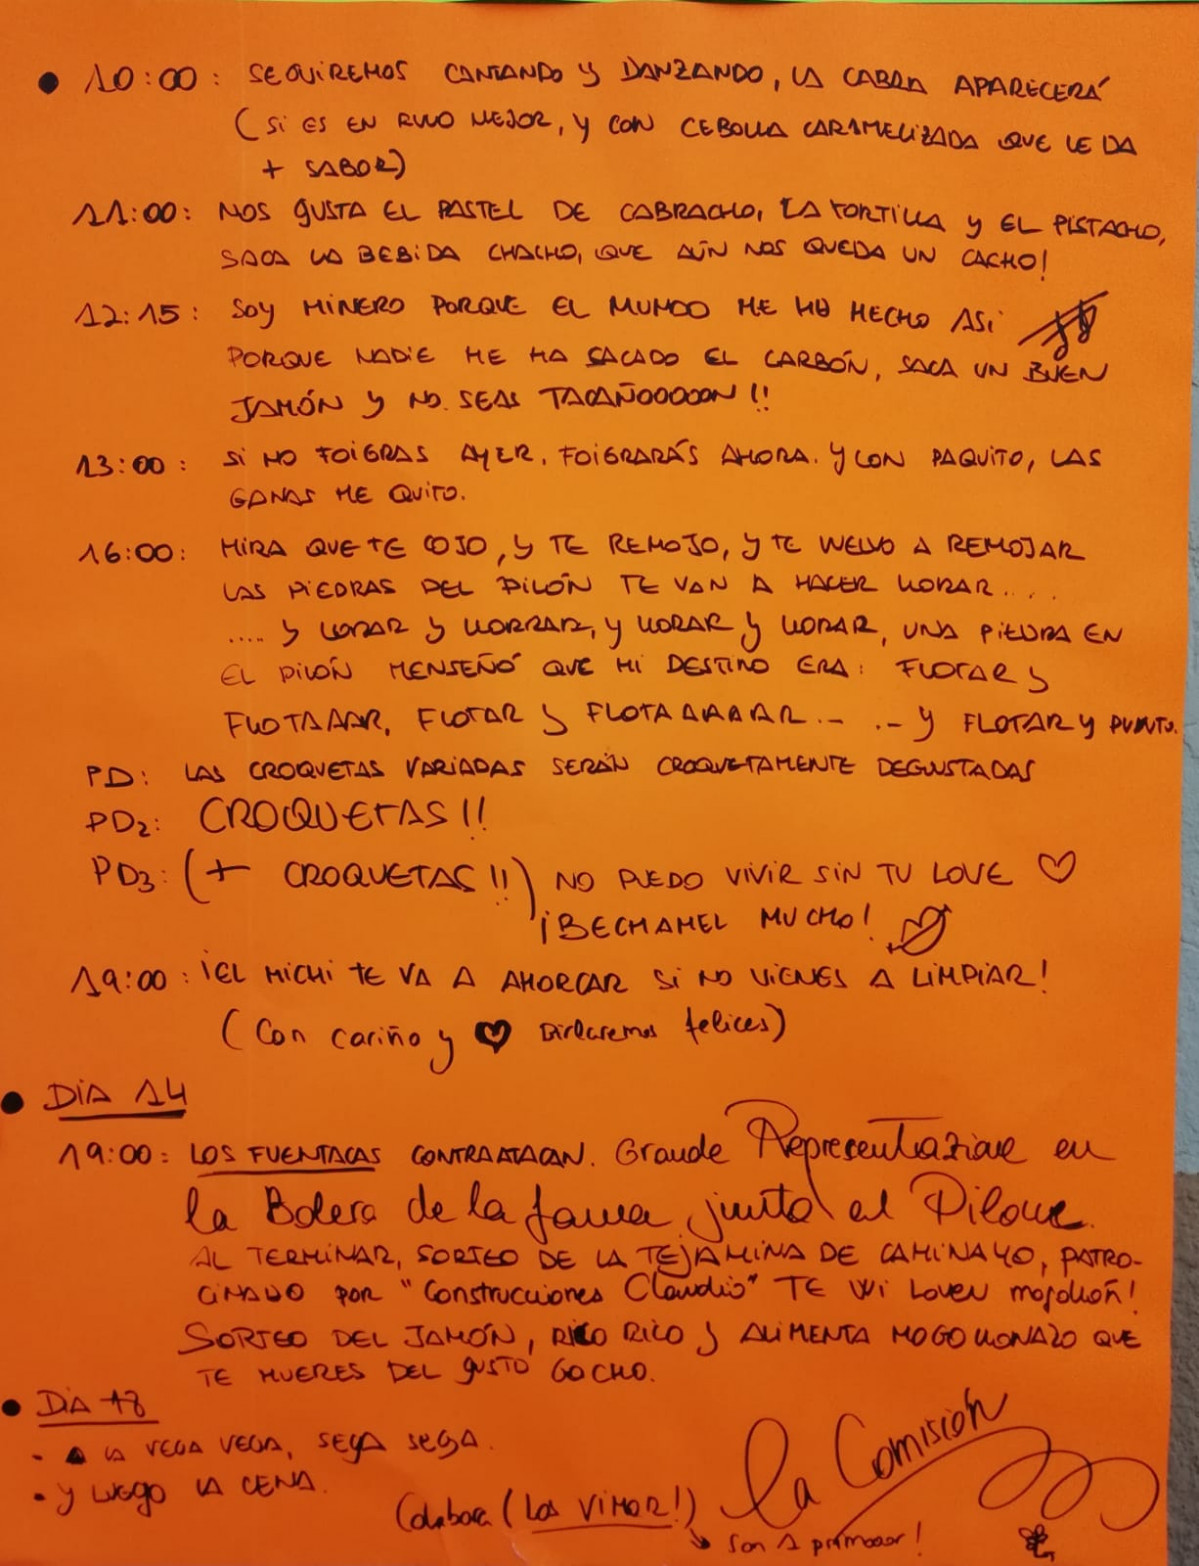 • 10:00: SEGUIREMOS CANTANDO Y DANZANDO, LA CABRA APARECERÁ
(SI ES EN RULO MEJOR, Y CON CEBOLLA CARAMELIZADA QUE LE DA
+ SABOR)
11:00: NOS GUSTA EL PASTEL DE CABRACHO, LA TORTILLA Y EL PISTACHO,
SACA LA BEBIDA CHACHO, QUE AÚN NOS QUEDA UN CACHO!
12:15: SOY MINERO PORQUE EL MUNDO ME HA HECHO ASI
PORQUE NADIE ME HA SACADO EL CARBÓN, SACA UN BUEN
JAMÓN Y NO SEAS TACAÑOOOOON!!
13:00: SI NO FOIGRAS AYER, FOIGRARÁS AHORA. Y CON PAQUITO, LAS
GANAS ME QUITO.
16:00: MIRA QUE TE COJO, Y TE REMOJO, Y TE VUELVO A REMOJAR
LAS PIEDRAS DEL PILÓN TE VAN A HACER LLORAR....
.... Y LLORAR Y LLORRAR, Y LLORAR Y LLORAR, UNA PIEDRA EN
EL PILÓN MENSEÑÓ QUE MI DESTINO ERA: FLOTAR Y
FLOTAAAR, FLOTAR Y FLOTAAAAAAR.. .. Y FLOTAR Y PUNTO.
PD: LAS CROQUETAS VARIADAS SERÁN CROQUETAMENTE DEGUSTADAS
PD2: CROQUETAS!!
PD3: (+ CROQUETAS!!) NO PUEDO VIVIR SIN TU LOVE ♡
¡BECHAMEL MUCHO!
19:00: ¡EL MICHI TE VA A AHORCAR SI NO VIENES A LIMPIAR!
(Con cariño y ♥ felices)
• DIA 14
19:00: LOS FUENTACAS CONTRAATACAN. Grande Representazione en
la Bolera de la fama junto al Pilone.
AL TERMINAR, SORTEO DE LA TEJAMINA DE CAMINAYO, PATRO-
CINADO POR "Construcciones Claudio" TE Wi Loven mojolloñ!
SORTEO DEL JAMÓN, RICO RICO Y ALIMENTA MOGOLLONAZO QUE
TE MUERES DEL GUSTO GOCHO.
• DIA 18
- A LA VEGA VEGA, SEGA SEGA.
• Y LUEGO LA CENA.
la Comisión
Colabora (LOS VIMOR!)
↘ Son A primooor!